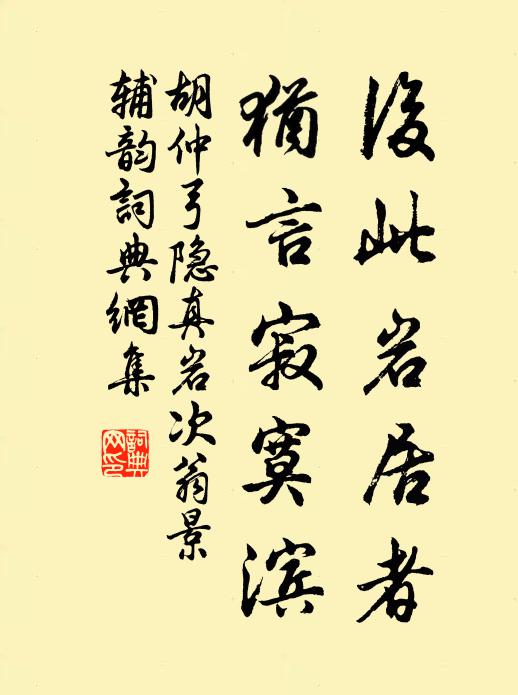 後此岩居者
猶言寂寞滨
胡仲弓隐真岩次翁景
辅韵詞典網集
詞典
网印